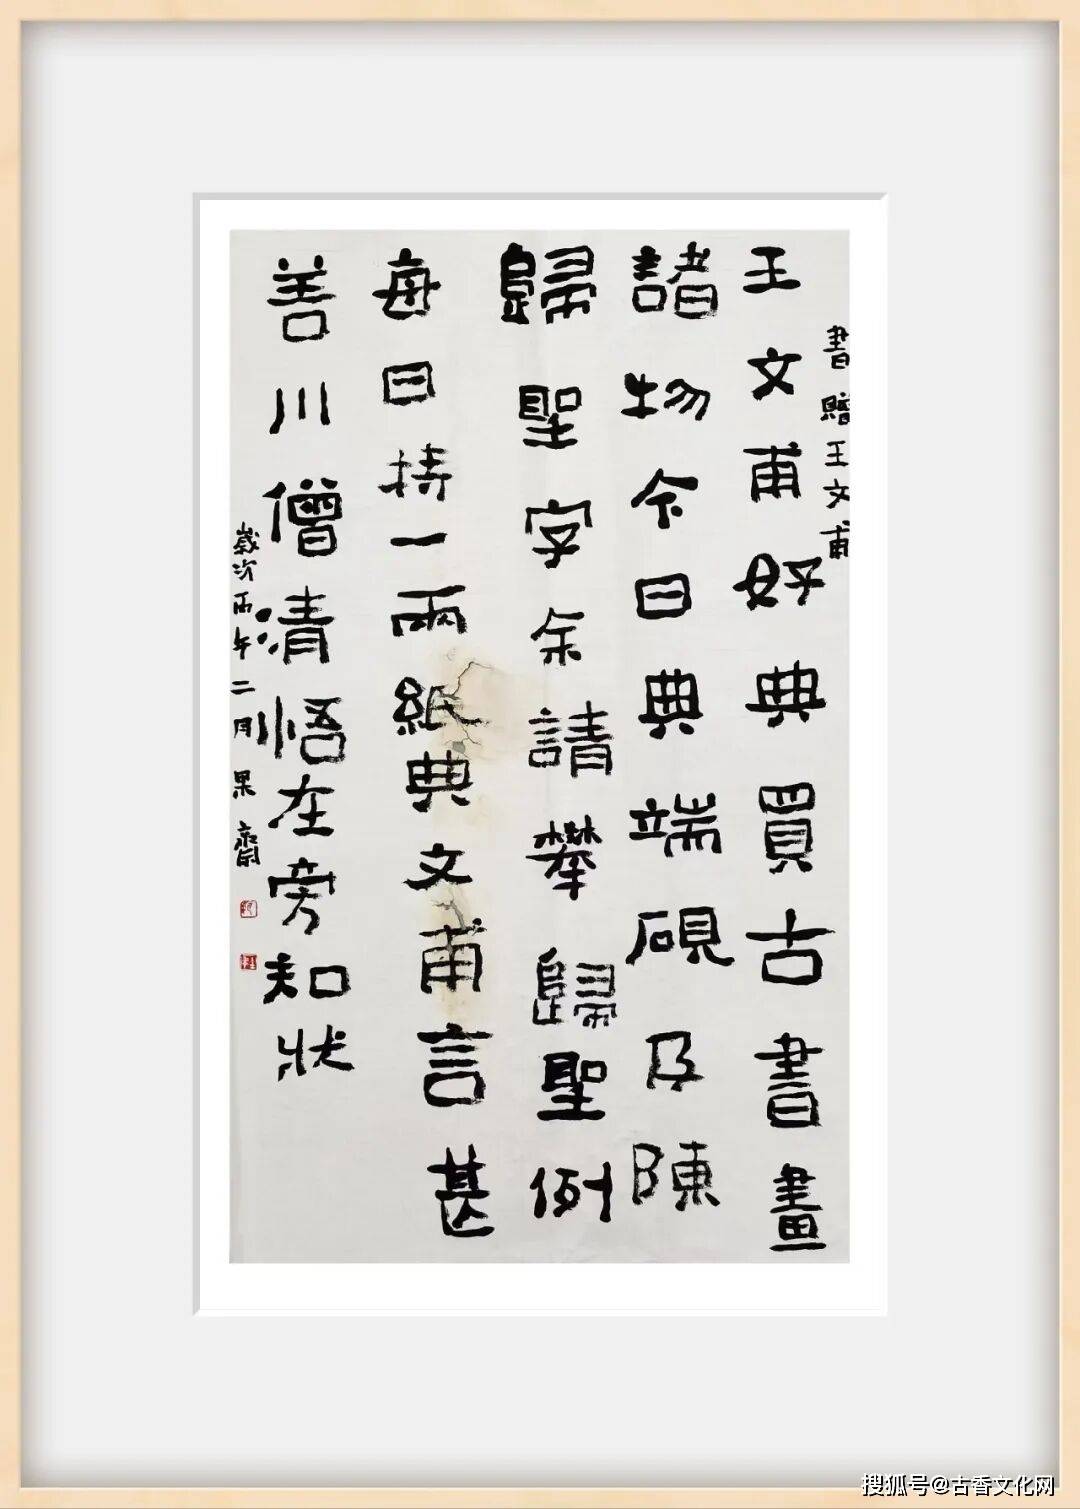 書贈王文甫
王文甫好典買古書畫
諸物今日典端硯及陳
歸聖字余請攀歸聖例
每日持一兩紙典文甫言甚
善川僧清悟在旁知狀
歲次丙午二月果齋
搜狐号@古香文化网